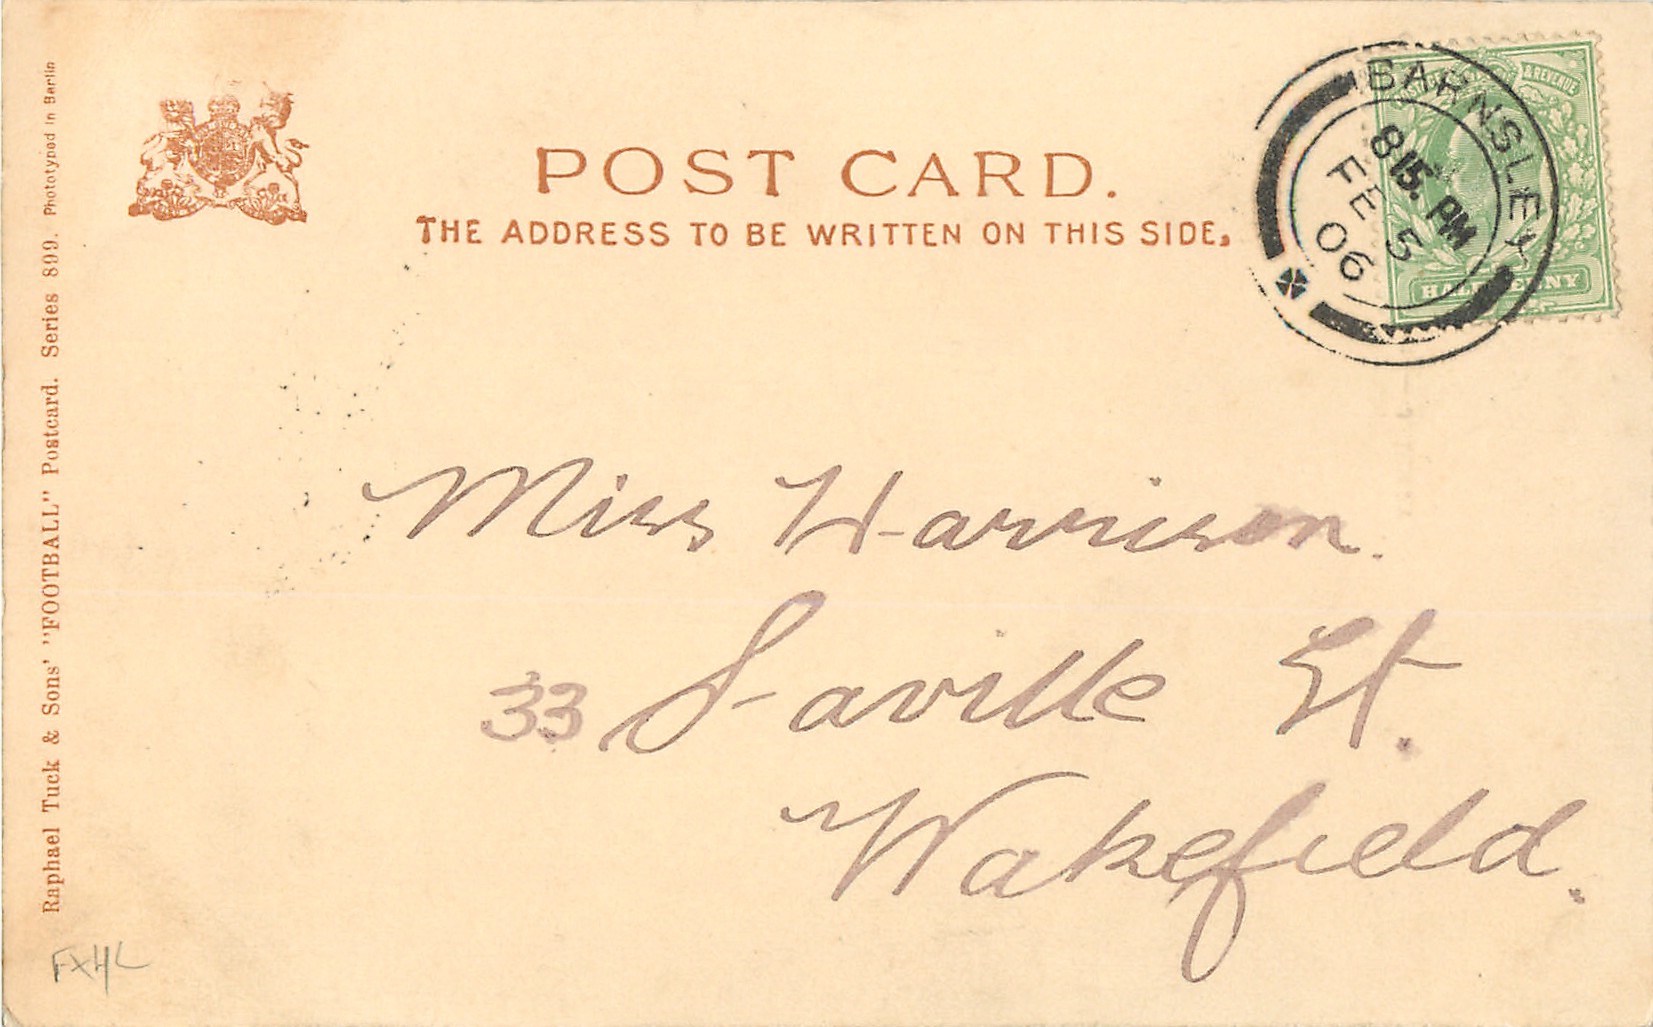 POST CARD.
THE ADDRESS TO BE WRITTEN ON THIS SIDE.
BARNSLEY
8 15. PM
FE 5
06
& REVENUE
HALFPENNY
Miss Harrison.
33 Saville St.
Wakefield.
Raphael Tuck & Sons' "FOOTBALL" Postcard. Series 899. Phototyped in Berlin